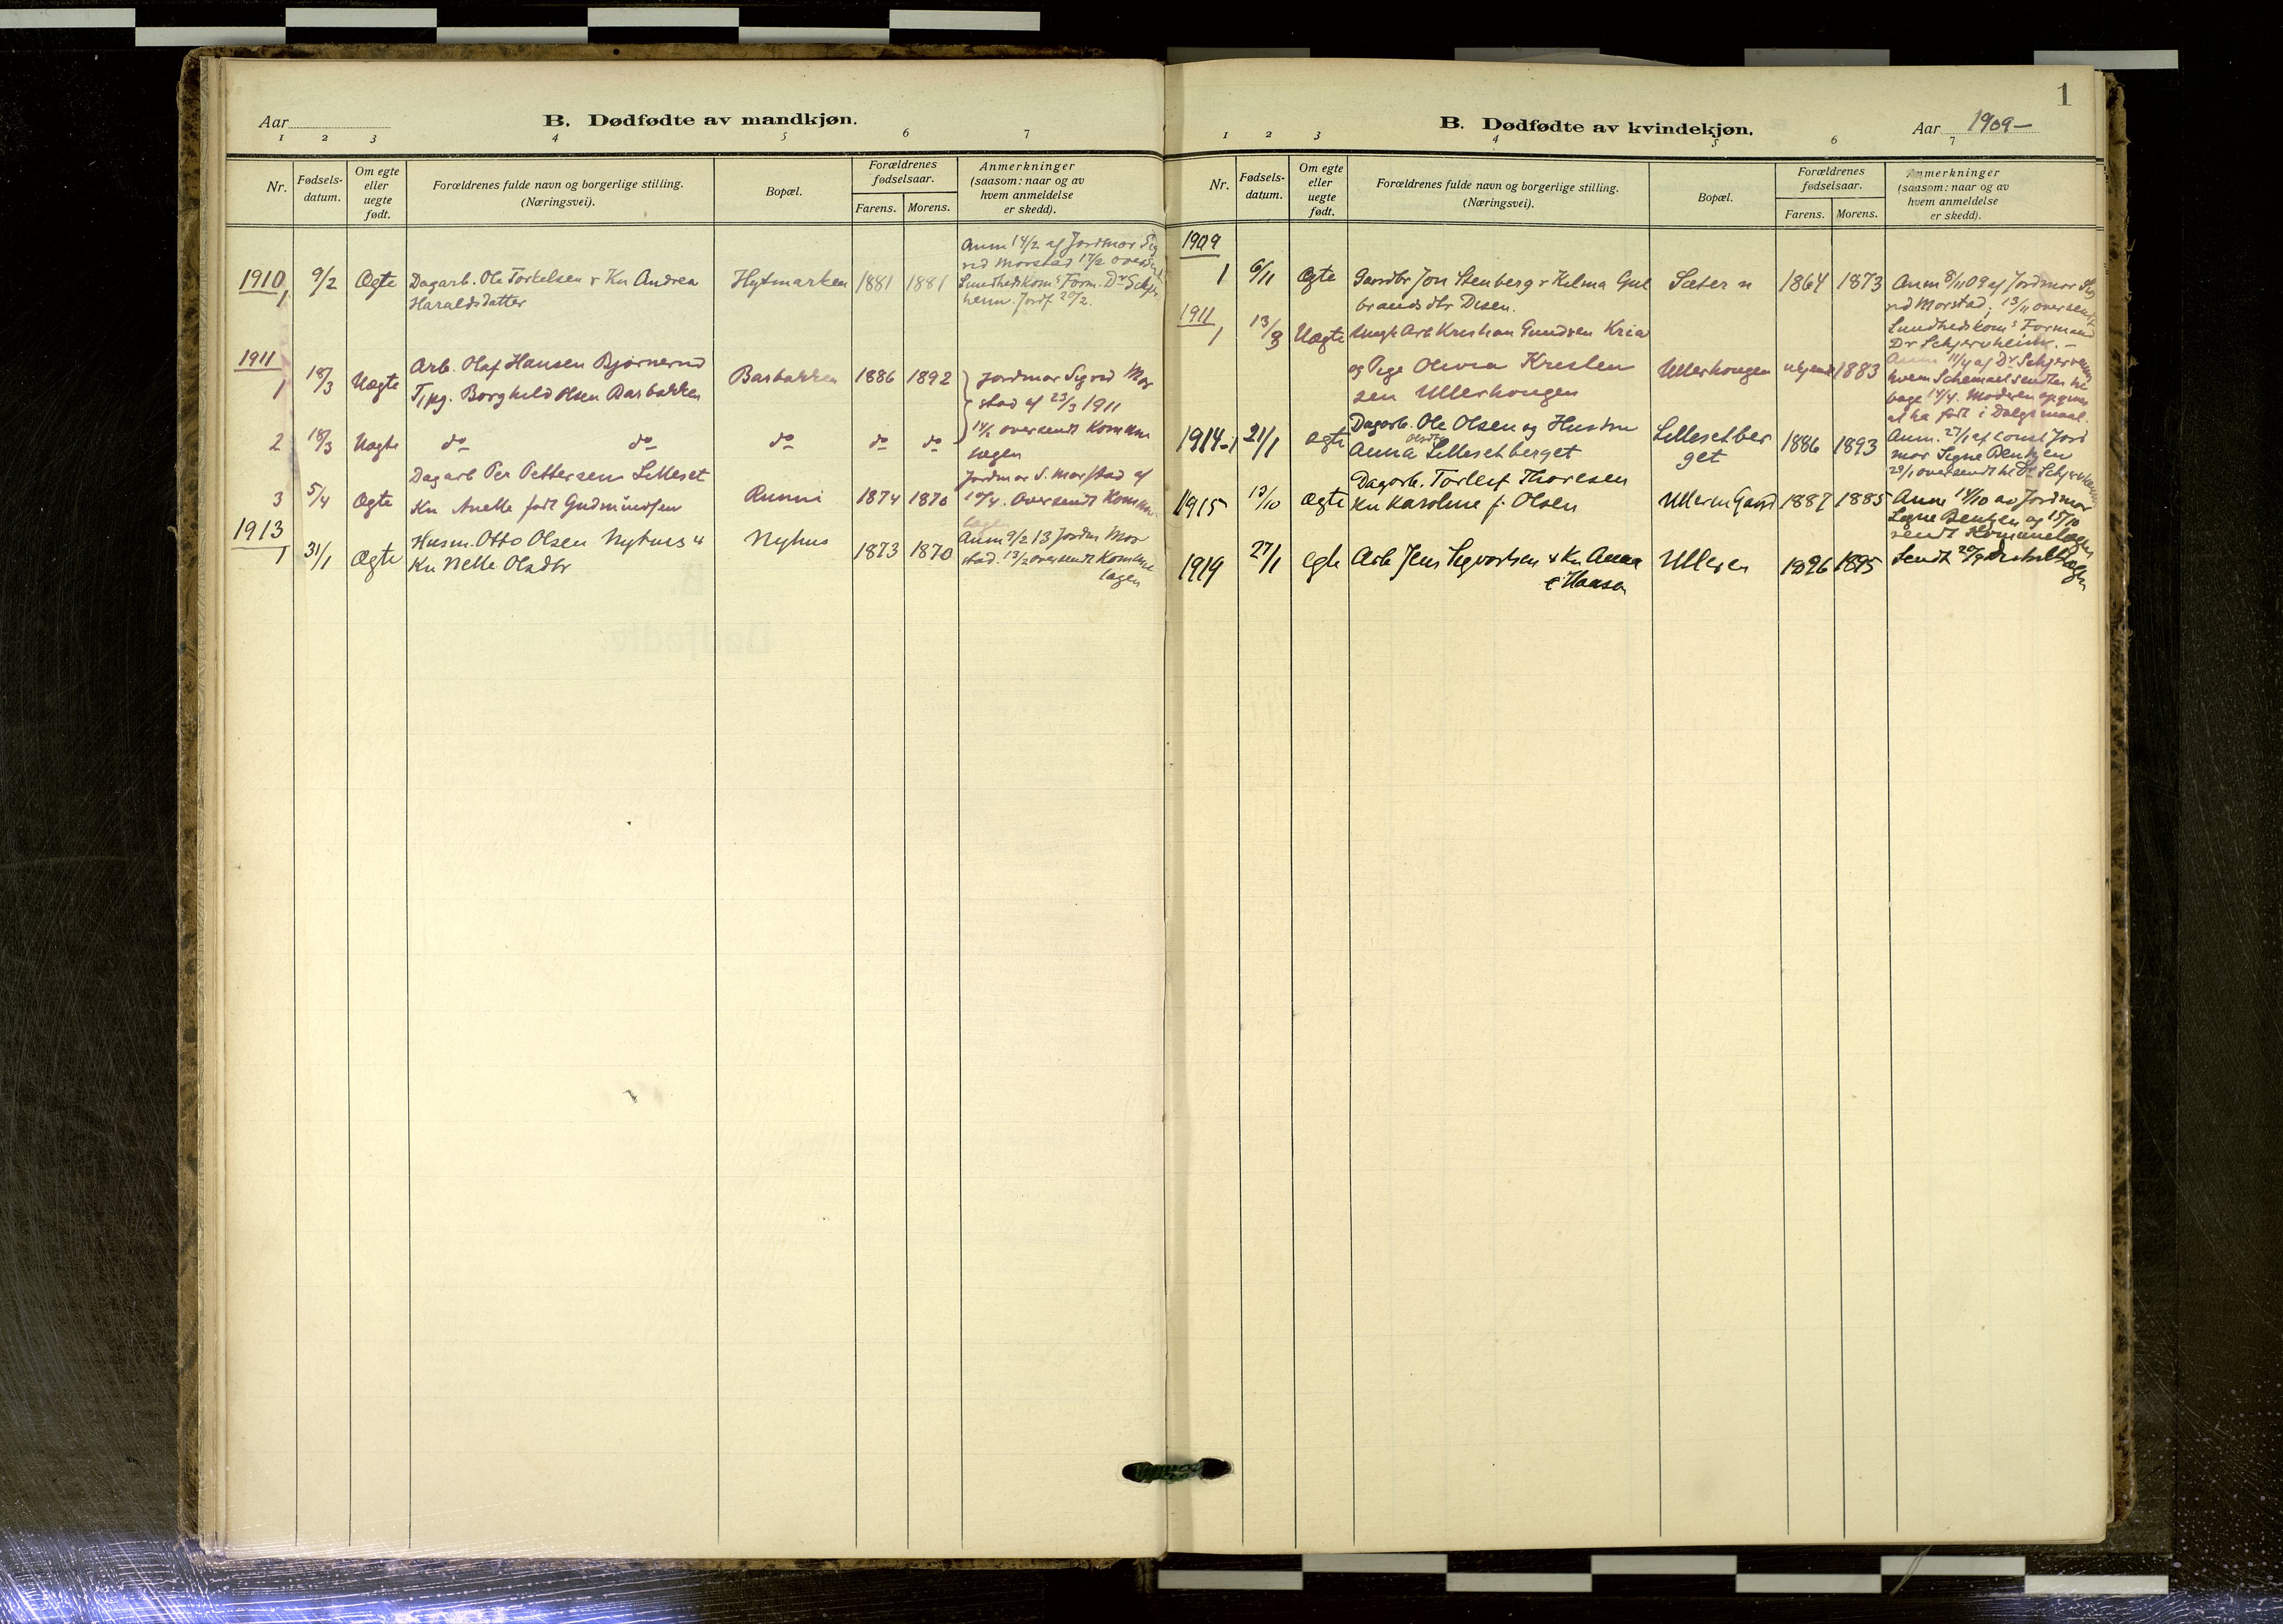 Aar
B. Dødfødte av mandkjøn.
1 2 3 4 5 6 7
Nr.
Fødsels-
datum.
Om egte
eller
uegte
født.
Forældrenes fulde navn og borgerlige stilling.
(Næringsvei).
Bopæl.
Forældrenes
fødselsaar.
Farens. Morens.
Anmerkninger
(saasom: naar og av
hvem anmeldelse
er skedd).
Anm 14/2 af Jordmor Sig
rid Morstad 17/2 overs
1910 9/2 Ægte Dagarb. Ole Torkelsen & Kn Andrea Hytmarken 1881 1881 Sundhedskoms Form. Dr Schjer
1 Haraldsdatter heim. Jordf 20/2.
1911
Arb. Olaf Hansen Bjørnerud
1 18/3 Uægte Tjpg. Borghild Olsen Barbakken Barbakken 1886 1892 Jordmor Sigrid Mor
stad af 23/3 1911
1/4 oversendt Kommune
2 18/3 Uægte do do do do do lægen
Dagarb Per Pettersen Lilleset Jordmor S. Morstad af
3 5/4 Ægte Kn Anette født Gudmundsen Runni 1874 1870 10/4. Oversendt Kommun
lægen
1913 Husm. Otto Olsen Nyhus & Nyhus Anm 9/2 13 Jordm Mor
1 31/1 Ægte Kn Nelle Olsdtr 1873 1870 stad. 13/2 oversendt Kommune
lægen
1
B. Dødfødte av kvindekjøn.
Aar 1909-
1 2 3 4 5 6 7
Nr.
Fødsels-
datum.
Om egte
eller
uegte
født.
Forældrenes fulde navn og borgerlige stilling.
(Næringsvei).
Bopæl.
Forældrenes
fødselsaar.
Farens. Morens.
Anmerkninger
(saasom: naar og av
hvem anmeldelse
er skedd).
1909
1 6/11 Ægte Gaardbr Jon Stenberg & Helma Gul Sæter n 1864 1873 Anm 8/11 09 af Jordmor Sig
brandsdtr Disen. rid Morstad; 13/11 oversendt
1911 Sundhedskoms Formand
1 13/3 Uægte Ungk Arb Kristian Gundsen Kria Dr Schjerveheim. -
og Pige Olivia Kristen Ullerhougen ukjendt 1883 Anm 11/4 af Dr Schjerveheim
sen Ullerhougen hvem Schemaet sendtes til
bage 14/4. Moderen opgives
at ha født i Dølgsmaal.
Dagarb. Ole Olsen og Hustru
1914-1 21/1 Ægte Anna Olsdtr Lillesetberget Lillesetber 1886 1893 Anm. 27/1 af const Jord
get mor Signe Bentzen
29/1 oversendt til Dr Schjerveheim
Dagarb. Torleif Thoresen
1915 13/10 Ægte Kn Karoline f. Olsen Ulleren Gaard 1887 1885 Anm 14/10 av Jordmor
Signe Bentzen og 15/10
sendt Kommunelægen
1919 27/1 Egte Arb Jens Sigvartsen & Kn Anna Ulleren 1896 1895 Sendt 20/9 Distriktslægen
f Hansen